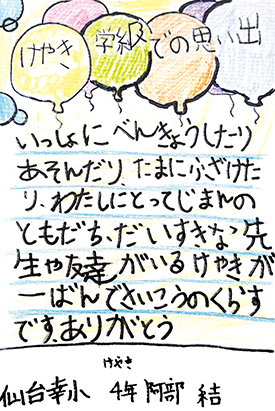 けやき学級での思い出
いっしょにべんきょうしたり
あそんだり、たまにふざけた
り、わたしにとってじまんの
ともだち、だいすきな先
生や友達がいるけやきが
一ばんでさいこうのくらす
です。ありがとう
けやき
仙台幸小 4年 阿部 結